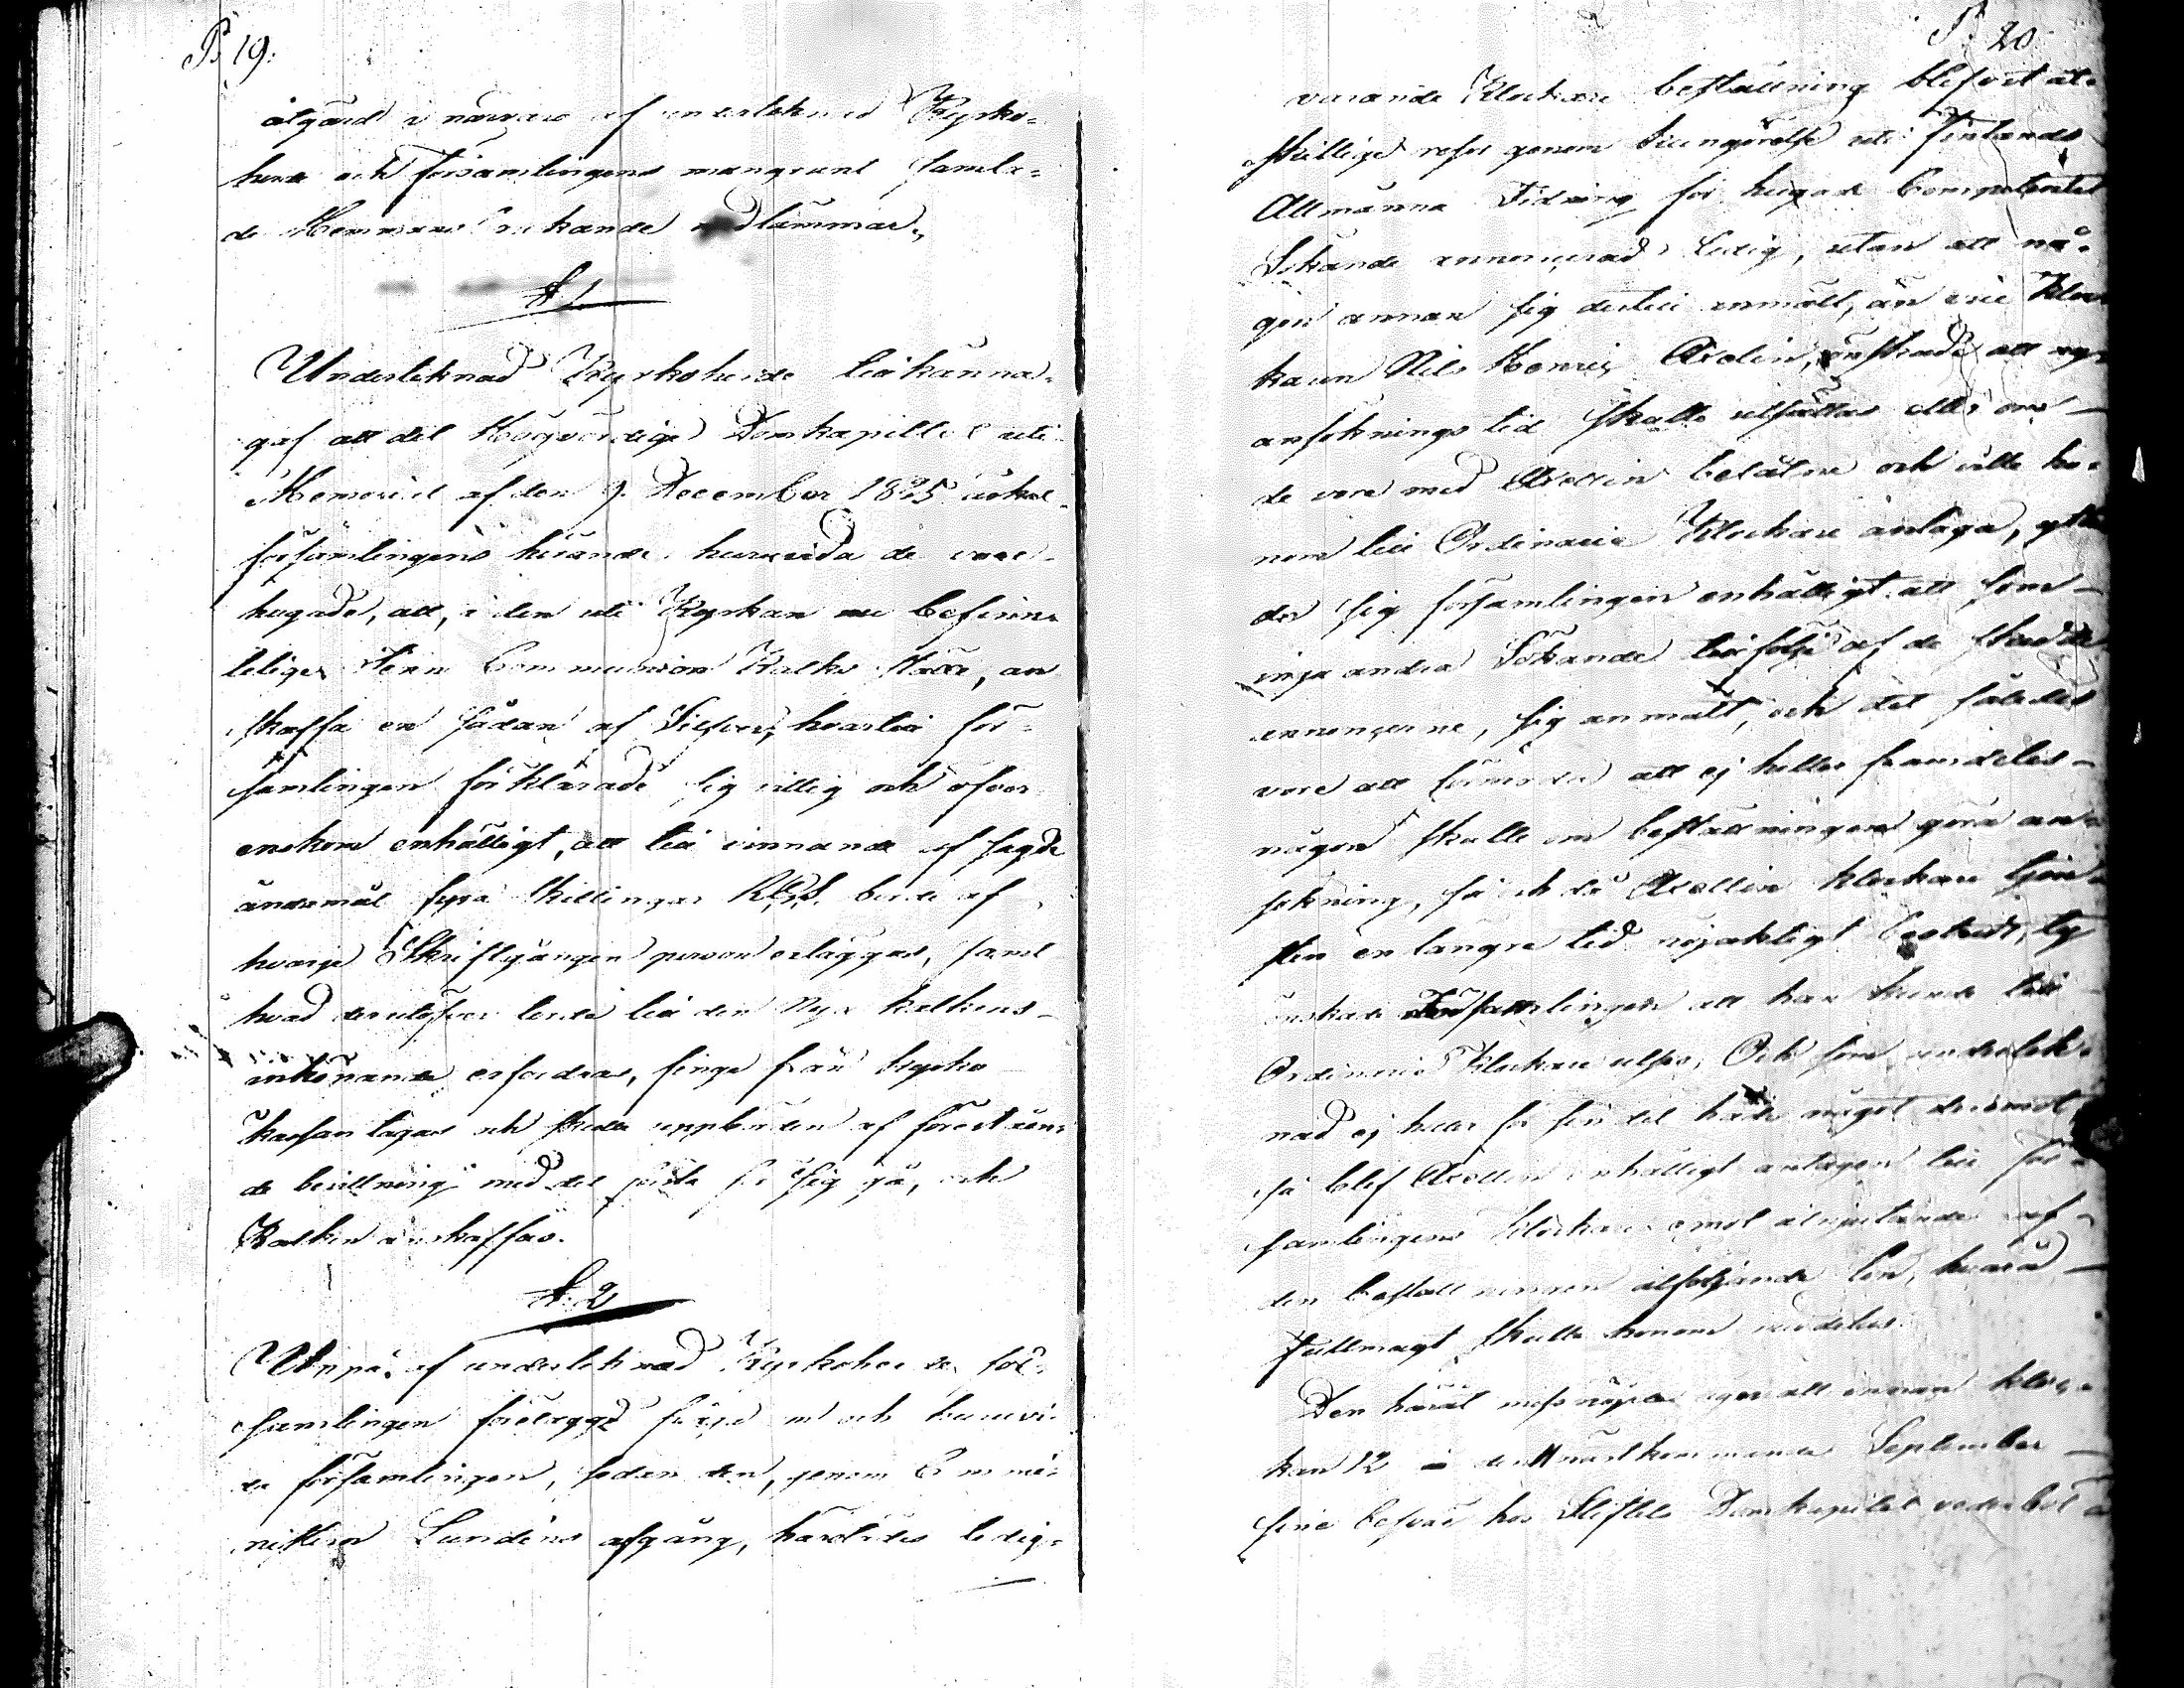 P. 19.
åtgärd i närvaro af undertecknad Kyrko-
herde och församlingens mangrant samla-
de Hemmans brukande ledammar,
§ 1
Undertecknad Kyrkoherde tillkänna-
gaf att det Högvördige Domkapitlet uti
Memorial af den 9. December 1825 äskat
församlingens hörande, huruvida de voro
hugade, att, i den uti Kyrkan nu befint-
lelige Tenn Communion Kalks ställe, an
skaffa en sådan af Silfver, hvartill för-
samlingen förklarade sig villig och öfver
enskom enhälligt, att till vinnande af sagde
ändamål fyra Skillingar borde af
hvarje Skriftgången person erläggas, samt
hvad derutöfver torde till den Nya kalkens
inköpande erfordras, finge från kyrko
kassan tagas och skulle uppbörden af förestäm-
de bevillning med det första för sig gå, och
Kalken anskaffas.
§. 2
Uppå af undertecknad Kyrkoherde för-
samlingen förelaggd fråga om och huruvi-
da församlingen, sedan den, genom
Lundéns afgång, härstädes ledig-
P. 20
varande Klockare beställning blifvit åt-
skillige resor genom kungörelse uti Finlands
Allmänna Tidning för hugade Competente
Sökande annoncerad ledig, utan att nå-
gon annan sig dertill anmält, än vice Kloc
karen Nils Henric Avelin, önskade att ny
ansöknings tid skulle utsättas eller om
de vore med Avellin belåtne och ville ho-
nom till Ordinarie Klockare antaga, yttra
der sig församlingen enhälligt att som
inga andra Sökande till följe af de skedde
annoncerne, sig anmält, och det således
vore att förmoda att ej heller framdeles
någon skulle om beställningen göra an-
sökning, så ock då Avellin klockare tjen-
sten en längre tid nöjaktigt bestridt, ty
önskade Församlingen att han kunde till
Ordinarie Klockare utses, Och som underteck-
nad ej heller för sin del hade något deremot
så blef Avellin enhälligt antagen till för-
samlingens klockare emot åtnjutande af
den beställningen åtföljande lön, hvarå
fullmagt skulle honom meddelas.
Den häråt missnöjde eger att innan kloc-
kan 12 å den nästkommande September
sine besvär hos Stiftets Domkapitel vederbör